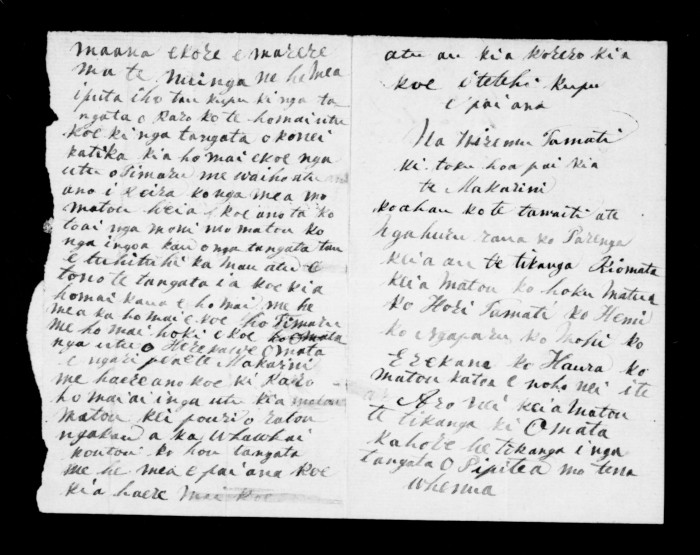 maana ekore e marere
ma te meinga ne he mea
iputa iho tau kupu ki nga ta
ngata o Raro ko te homai utu
koe ki nga tangata o konei
katika kia homai ekoe nga
utu o Timaru me waiho atu
ano i Reira ko nga mea mo
matou heia koe ano ta ko
toai nga moni mo matou ko
nga ingoa kau o nga tangata tau
e tuhituhi ka mau atu e
tono te tangata ia koe kia
homai kaua e homai me he
mea ka homai e koe ho Timaru
me homai hoki e koe ko Omata
nga utu o Herekawe Omata
e ngari pea e te Makarini
me haere ano koe ki Raro
homai ai inga utu kia matou
matou kei pouri o ratou
ngakau a ka Whawhai
koutou ko hou tangata
me he mea e pai ana koe
kia haere mai koe
atu au kia korero kia
koe i tetehi kupu
e pai ana
Na Wiremu Tamati
ki toku hoa pai kia
te Makarini
koahau ko te tamaiti ate
Ngahuru rana ko Parenga
kei a au te tikanga Riomata
kei a matou ko hoku Matua
ko Hori Tamati ko Hemi
ko Ngaparu ko Mohi ko
Erekana ko Haura ko
matou katoa e noho nei i te
Aro nei kei a Matou
te tikanga ki Omata
kahore he tikanga i nga
tangata O Pipitea mo tena
whenua